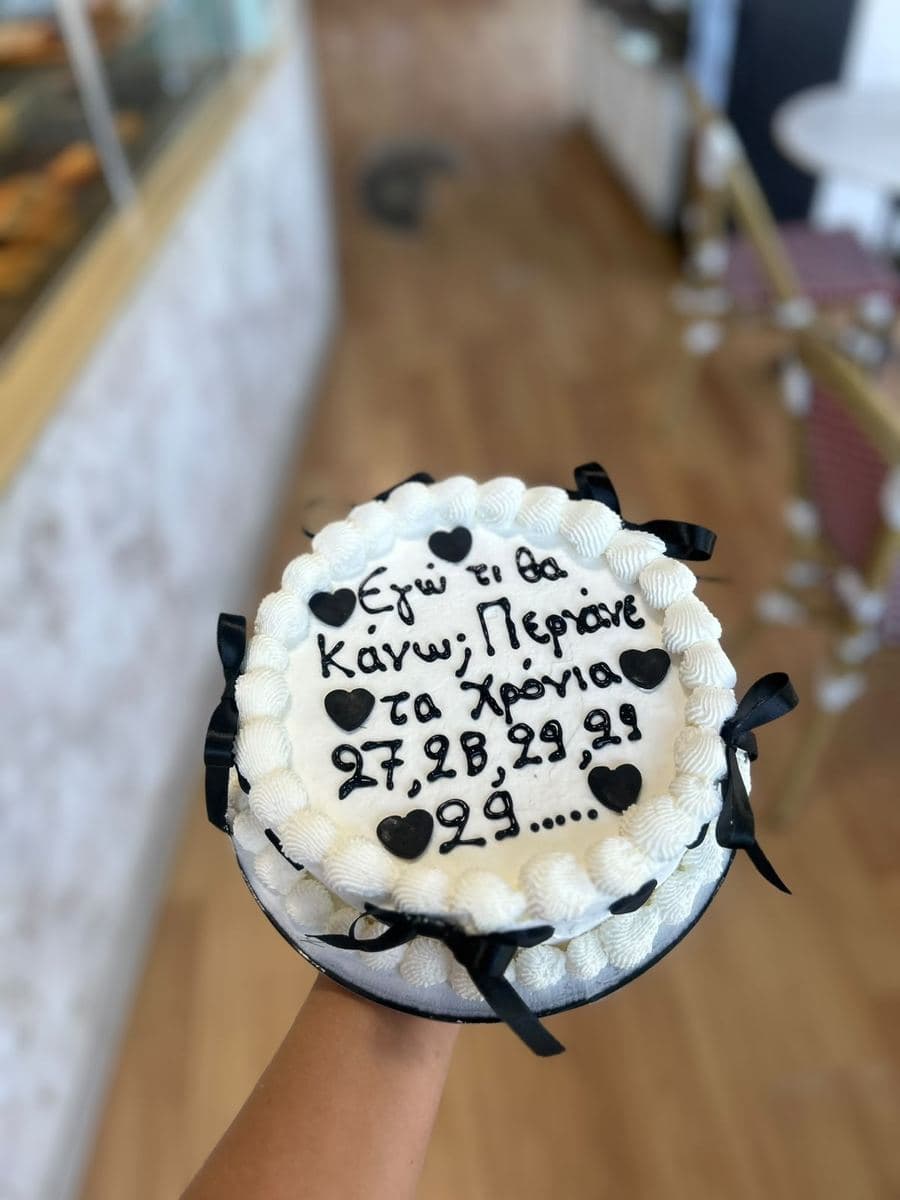 Εγώ τι θα
Κάνω; Περνάνε
τα χρόνια
27, 28, 29, 29
29.....